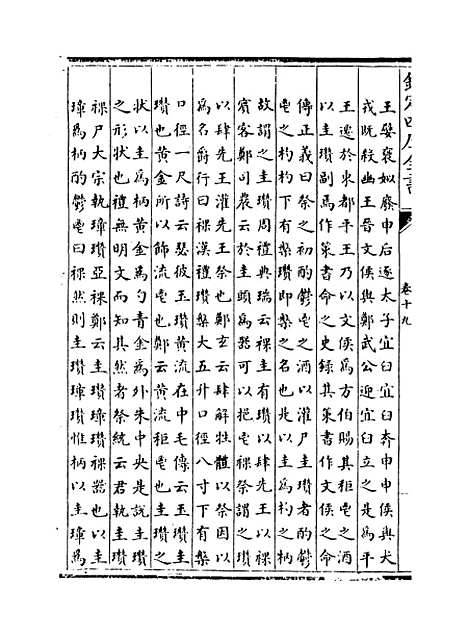 欽定四庫全書
卷十九
王嬖褒姒廢申后逐太子宜臼宜臼奔申申侯與犬
戎既殺幽王晉文侯與鄭武公迎宜臼立之是為平
王遷於東都平王乃以文侯為方伯賜其秬鬯之酒
以圭瓚副焉作策書命之史錄其策書作文侯之命
傳正義曰祭之初酌鬱鬯之酒以灌尸圭瓚者酌鬱
鬯之杓杓下有槃瓚即槃之名也是以圭為杓之柄
故謂之圭瓚周禮典瑞云祼圭有瓚以肆先王以祼
賓客鄭司農云於圭頭為器可以挹鬯祼祭謂之瓚
以肆先王灌先王祭也鄭玄云肆解牲體以祭因以
為名爵行曰祼漢禮瓚槃大五升口徑八寸下有槃
口徑一尺詩云瑟彼玉瓚黃流在中毛傳云玉瓚圭
瓚也黃金所以飾流鬯也鄭云黃流秬鬯也圭瓚之
狀以圭為柄黃金為勺青金為外朱中央是說圭瓚
之形狀也禮無明文而知其然者祭統云君執圭瓚
祼尸大宗執璋瓚亞祼鄭云圭瓚璋瓚祼器也以圭
璋為柄酌鬱鬯曰祼然則圭瓚璋瓚惟柄以圭璋為